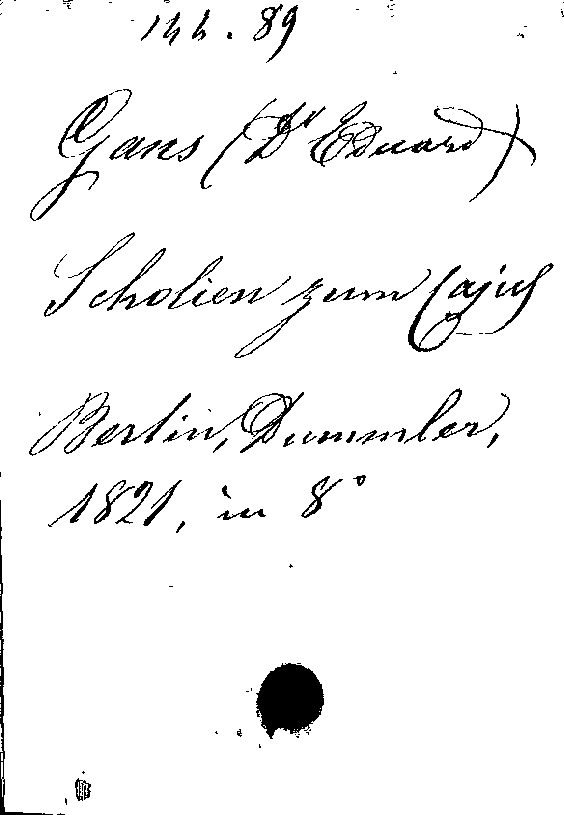 144.89
Gans (Dr Eduard)
Scholien zum Cajus
Berlin, Dummler,
1821, in 8°